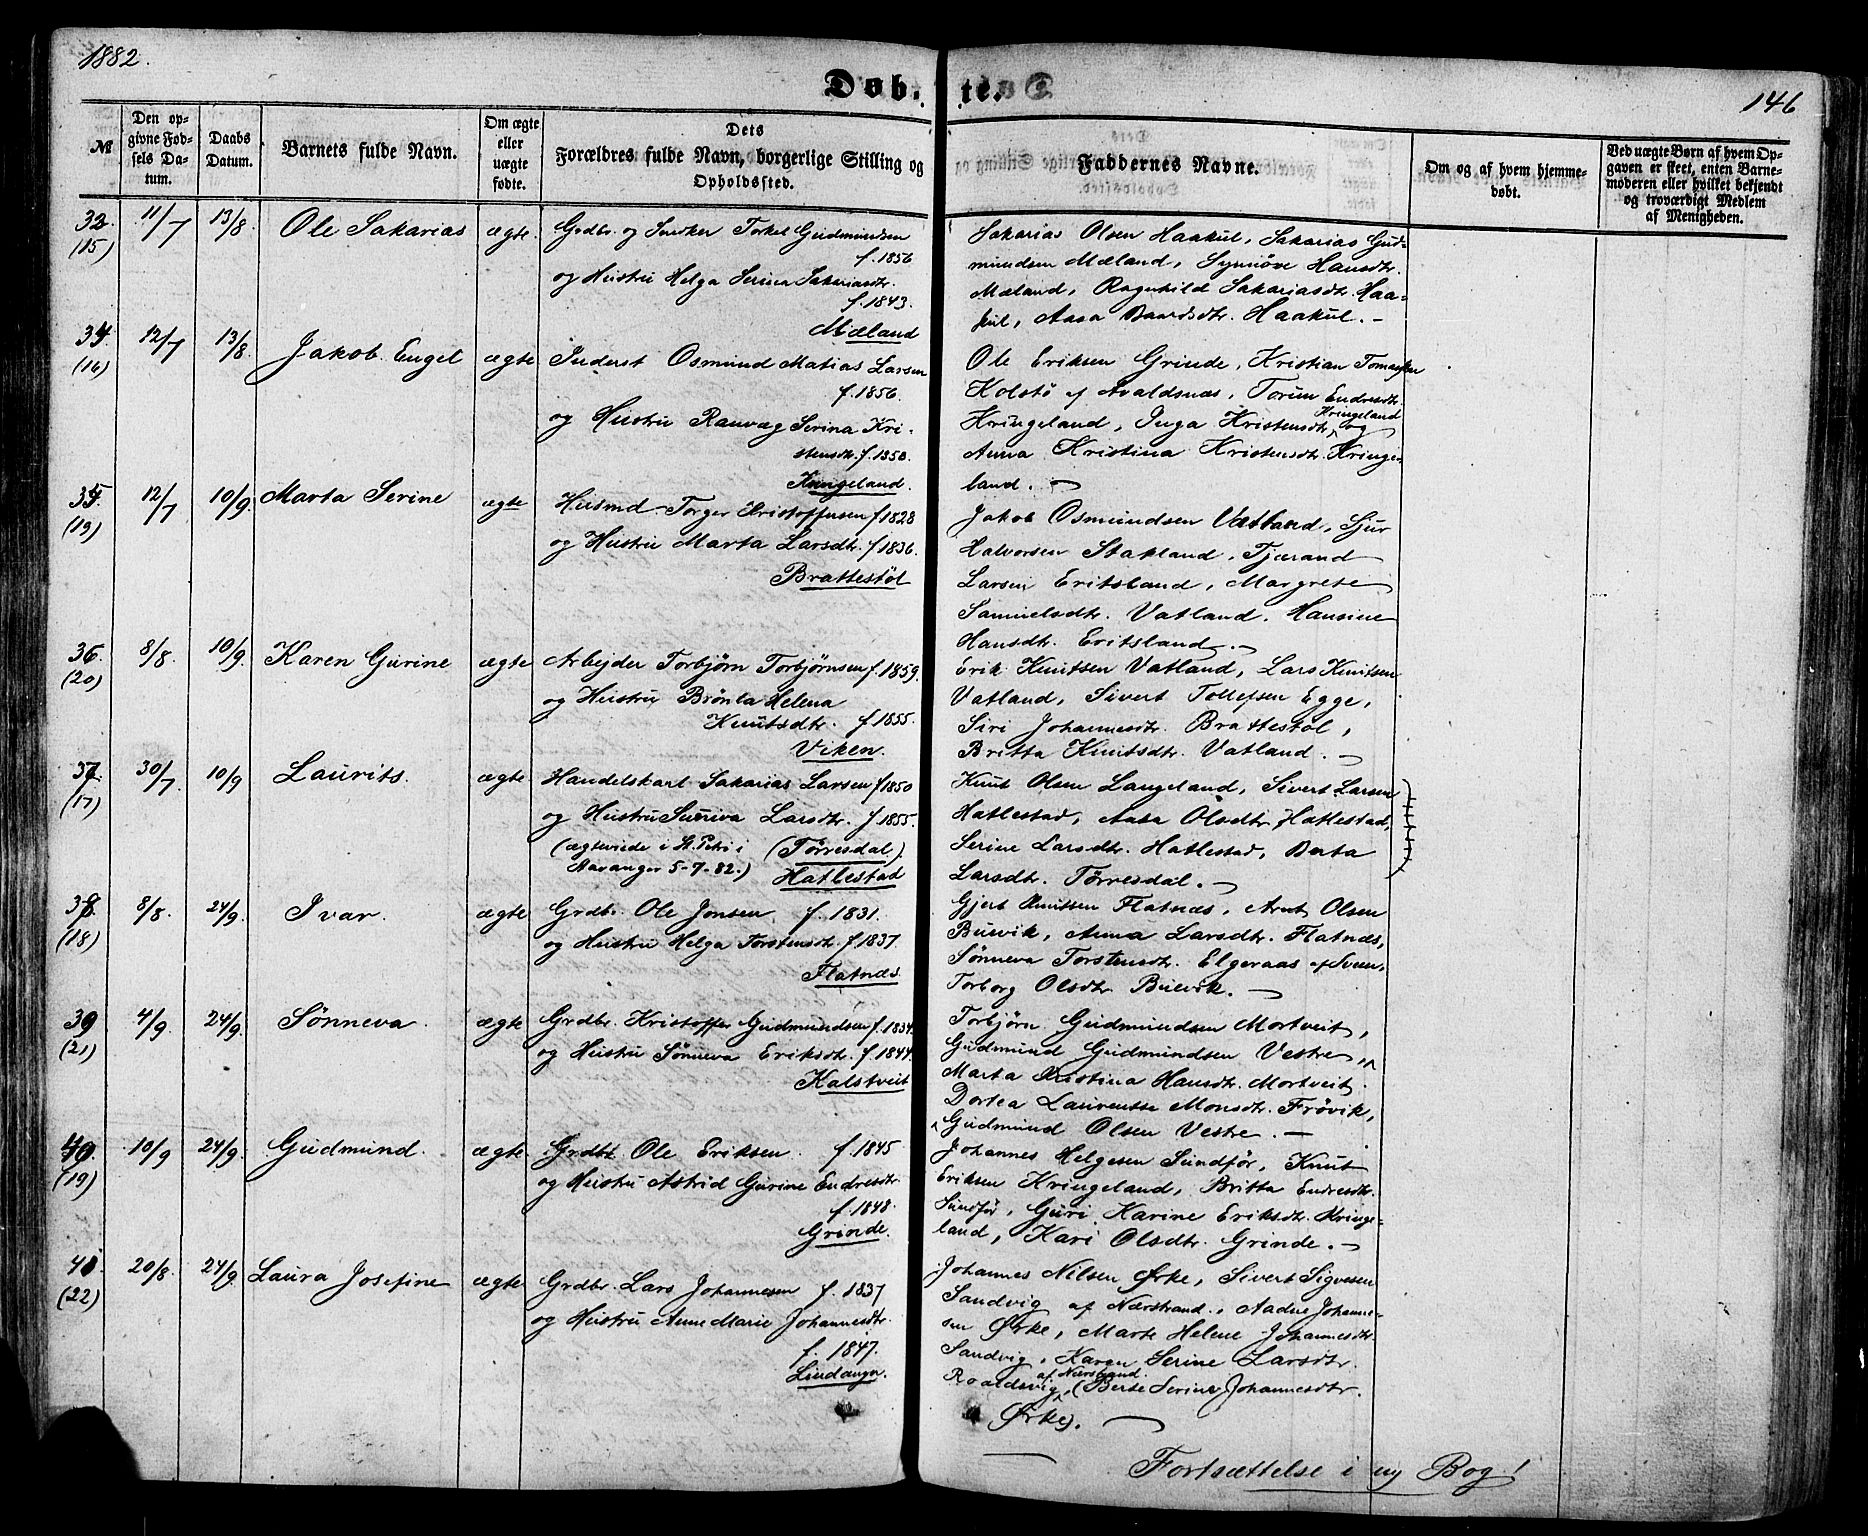 1882.
Døbte.
146
№
Den opgivne Fødsels Datum.
Daabs Datum.
Barnets fulde Navn.
Om ægte eller uægte fødte.
Dets Forældres fulde Navn, borgerlige Stilling og Opholdssted.
Faddernes Navne.
Om og af hvem hjemmedøbt.
Ved uægte Børn af hvem Opgaven er skeet, enten Barnemoderen eller hvilket bekjendt og troværdigt Medlem af Menigheden.
33. 11/7 13/8 Ole Sakarias ægte. Grdbr. og Snedker Torkel Gudmundsen
(15) f. 1856
og Hustru Helga Serina Sakariasdtr.
f. 1843.
Mæland
Sakarias Olsen Haakul, Sakarias Gud-
mundsen Mæland, Synnöve Hansdtr.
Mæland, Ragnhild Sakariasdtr. Haa-
kul, Aasa Baardsdtr. Haakul. –
34. 12/7 13/8. Jakob Engel ægte Inderst Osmund Matias Larsen
(16) f. 1856.
og Hustru Ranvæg Serina Kri-
stensdtr. f. 1850.
Kringeland.
Ole Eriksen Grinde, Kristian Tomassen
Kolstö af Avaldsnæs, Torun Endresdtr.
Kringeland, Inga Kristensdtr. Kringeland og
Anna Kristina Kristensdtr. Kringe-
land. –
35. 12/7 10/9. Marta Serine ægte Husmd. Torger Kristoffersen f 1828
(13) og Hustru Marta Larsdtr. f. 1836.
Brattestöl
Jakob Osmundsen Vatland, Sjur
Halvorsen Stakland, Tjærand
Larsen Eritsland, Margrete
Samuelsdtr. Vatland, Hansine
Hansdtr. Eritsland. –
36. 8/8. 10/9. Karen Gurine ægte Arbejder Torbjörn Torbjörnsen f. 1859.
(20) og Hustru Brönla Helena
Knutsdtr. f. 1855.
Viken.
Erik Knutsen Vatland, Lars Knutsen
Vatland, Sivert Tollefsen Egge,
Siri Johannesdtr. Brattestöl,
Britta Knutsdtr. Vatland. –
37. 30/7 10/9 Laurits. ægte Handelskarl Sakarias Larsen f 1850
(17) og Hustru Sunniva Larsdtr. f. 1855.
(ægteviede i St. Petri i (Törresdal).
Stavanger 5-7-82.) Hatlestad
Knut Olsen Langeland, Sivert Larsen
Hatlestad, Aasa Olsdtr. Hatlestad,
Serine Larsdtr. Hatlestad, Berta
Larsdtr. Törresdal. –
38. 8/8. 24/9. Ivar. ægte Grdbr. Ole Jonsen, f. 1831.
(18) og Hustru Helga Torstensdtr. f. 1837.
Flatnæs
Gjert Knutsen Flatnæs, Arnt Olsen
Buevik, Anna Larsdtr. Flatnæs,
Sönneva Torstensdtr. Elgeraas af Sveen,
Torborg Olsdtr. Buevik. –
39 4/9. 24/9. Sönneva. ægte Grdbr. Kristoffer Gudmundsen f. 1834.
(21) og Hustru Sönneva Eriksdtr. f. 1844.
Kalstveit
Torbjörn Gudmundsen Mortveit,
Gudmund Gudmundsen Vestre,
Marta Kristina Hansdtr. Mortveit.
Dortea Laurentse Monsdtr. Frövik,
Gudmund Olsen Vestre. –
40. 10/9 24/9. Gudmund. ægte Grdbr. Ole Eriksen. f. 1845
(19) og Hustru Astrid Gurine Endresdtr.
f. 1848.
Grinde.
Johannes Helgesen Sundför, Knut
Eriksen Kringeland, Britta Endresdtr.
Sundför, Guri Karine Eriksdtr. Kringe-
land, Kari Olsdtr. Grinde. –
41. 20/8. 24/9. Laura Josefine ægte Grdbr. Lars Johannesen f. 1837
(22) og Hustru Anne Marie Johannesdtr.
f. 1847.
Lindanger.
Johannes Nilsen Ørke, Sivert Sigvesen
Sandvig af Nærstrand, Aadne Johanne-
sen Ørke, Marte Helene Johannesdtr.
Sandvig, Karen Serine Larsdtr.
Roaldsvig af Nærstrand. (Berte Serine Johannesdtr.
Ørke). –
Fortsættelse i ny Bog!